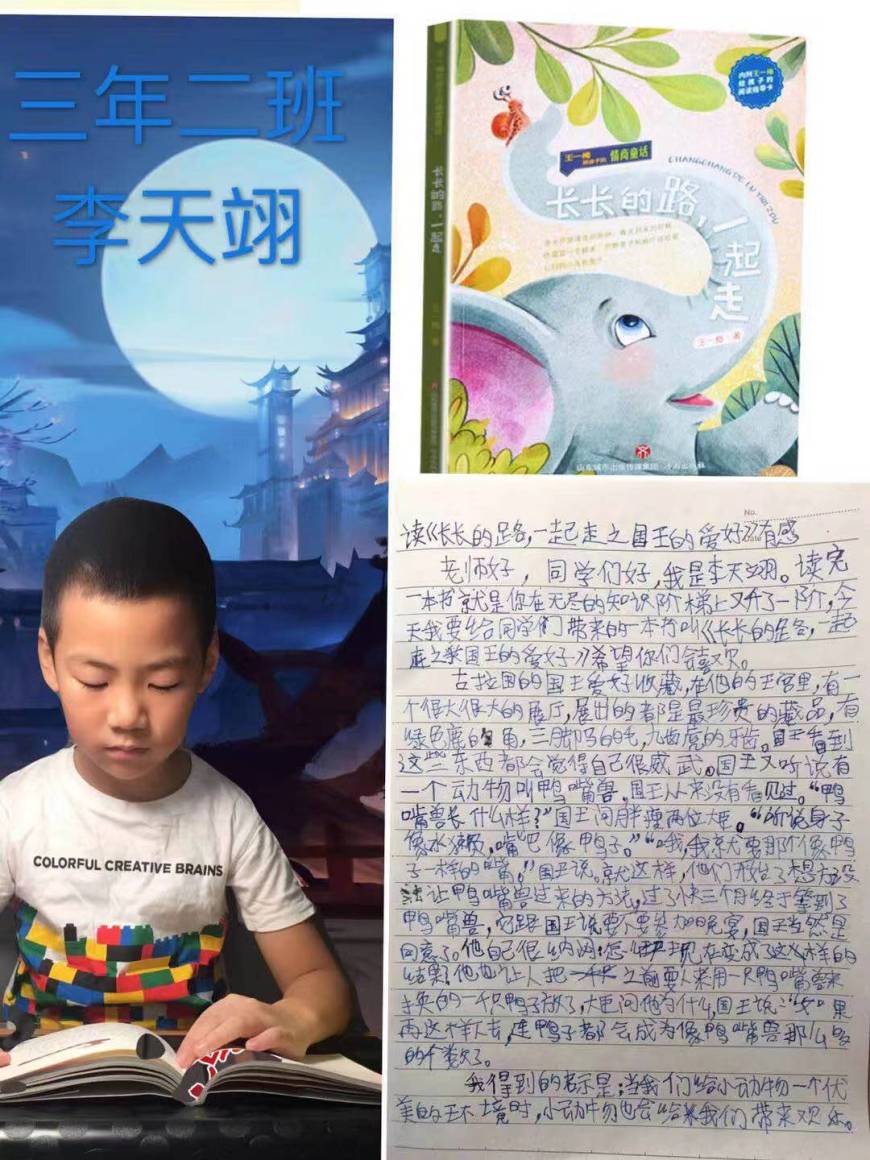 三年二班
李天翊
COLORFUL CREATIVE BRAINS
长长的路,一起走
王一梅
内附王一梅
给孩子的
阅读指导卡
王一梅
情商童话
CHANGCHANG DE LU YIQI ZOU
长长的路,
一起走
王一梅 著
No.
读《长长的路,一起走之国王的爱好》有感
老师好,同学们好,我是李天翊。读完
一本书就是你在无尽的知识阶梯上又升了一阶,今
天我要给同学们带来的一本书叫《长长的路,一起
走之国王的爱好》希望你们会喜欢。
古拉国的国王爱好收藏,在他的王宫里,有
一个很大很大的展厅,展出的都是最珍贵的藏品,有
绿色鹿的角,三脚马的毛,九齿虎的牙齿。国王看到
这些东西都会觉得自己很威武。国王又听说有
一个动物叫鸭嘴兽,国王从来没有看见过。“鸭
嘴兽长什么样?”国王问胖瘦两位大臣。“听说身子
像水獭,嘴巴像鸭子。”“哦,我就要那个像鸭
子一样的嘴。”国王说。就这样,他们
让鸭嘴兽过来的方法,过了快三个月终于等到了
鸭嘴兽,它跟国王说要不要参加晚宴,国王当然是
同意了。他自己很纳闷:怎 现在变成了这么样的
结果?他也让人把 之前要人来用一只鸭嘴兽来
换的一千只鸭子放了,大臣问他为什么,国王说:“如果
再这样下去,连鸭子都会成为像鸭嘴兽那么少
的个数了。
我得到的启示是:当我们给小动物一个优
美的环境时,小动物也会给我们带来欢乐。